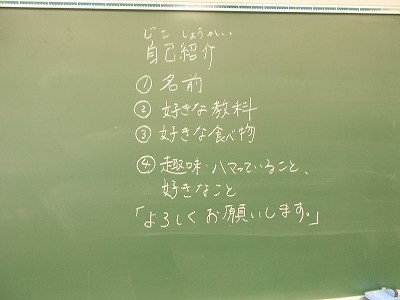 じこ しょうかい
自己紹介
① 名前
② 好きな教科
③ 好きな食べ物
④ 趣味・ハマっていること、
好きなこと
「よろしくお願いします。」